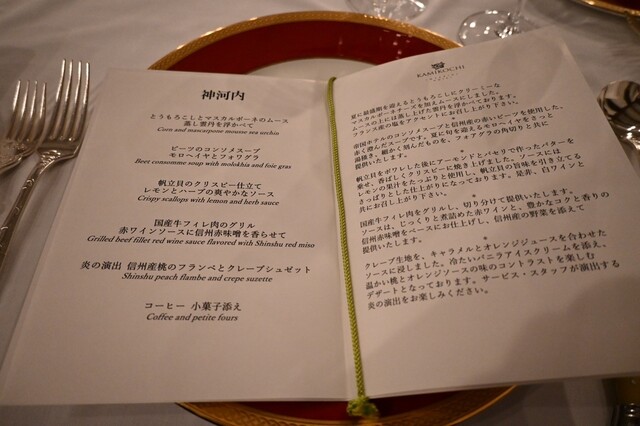 神河内
とうもろこしとマスカルポーネのムース
蒸し雲丹を浮かべて
Corn and mascarpone mousse sea urchin
ビーツのコンソメスープ
モロヘイヤとフォワグラ
Beet consomme soup with molokhia and foie gras
帆立貝のクリスピー仕立て
レモンとハーブの爽やかなソース
Crispy scallops with lemon and herb sauce
国産牛フィレ肉のグリル
赤ワインソースに信州赤味噌を香らせて
Grilled beef fillet red wine sauce flavored with Shinshu red miso
炎の演出 信州産桃のフランベとクレープシュゼット
Shinshu peach flambe and crepe suzette
コーヒー 小菓子添え
Coffee and petite fours
KAMIKOCHI
夏に最盛期を迎えるとうもろこしにクリーミーな
マスカルポーネチーズを加えムースにしました。
ムースの上には蒸し上げた雲丹を浮かべております。
フランス産の塩をアクセントにお召し上がり下さい。
帝国ホテルのコンソメスープと信州産の赤いビーツを使用した、
赤く澄んだスープです。夏に旬を迎えるモロヘイヤをさっと
湯掻き、細かく刻んだものを、フォアグラの角切りと共に
提供いたします。
帆立貝をポワレした後にアーモンドとパセリで作ったバターを
乗せ、香ばしくクリスピーに焼き上げました。ソースには
レモンの果汁をたっぷりと使用し、帆立貝の旨味を引き立てる
さっぱりとした仕上がりになっております。是非、白ワインと
共にお召し上がり下さい。
国産牛フィレ肉をグリルし、切り分けて提供いたします。
ソースは、じっくりと煮詰めた赤ワインと、豊かなコクと香りの
信州赤味噌をベースにお仕上げし、信州産の野菜を添えて
提供いたします。
クレープ生地を、キャラメルとオレンジジュースを合わせた
ソースに浸しました。冷たいバニラアイスクリームを添え、
温かい桃とオレンジソースの味のコントラストを楽しむ
デザートとなっております。サービス・スタッフが演出する
炎の演出をお楽しみください。